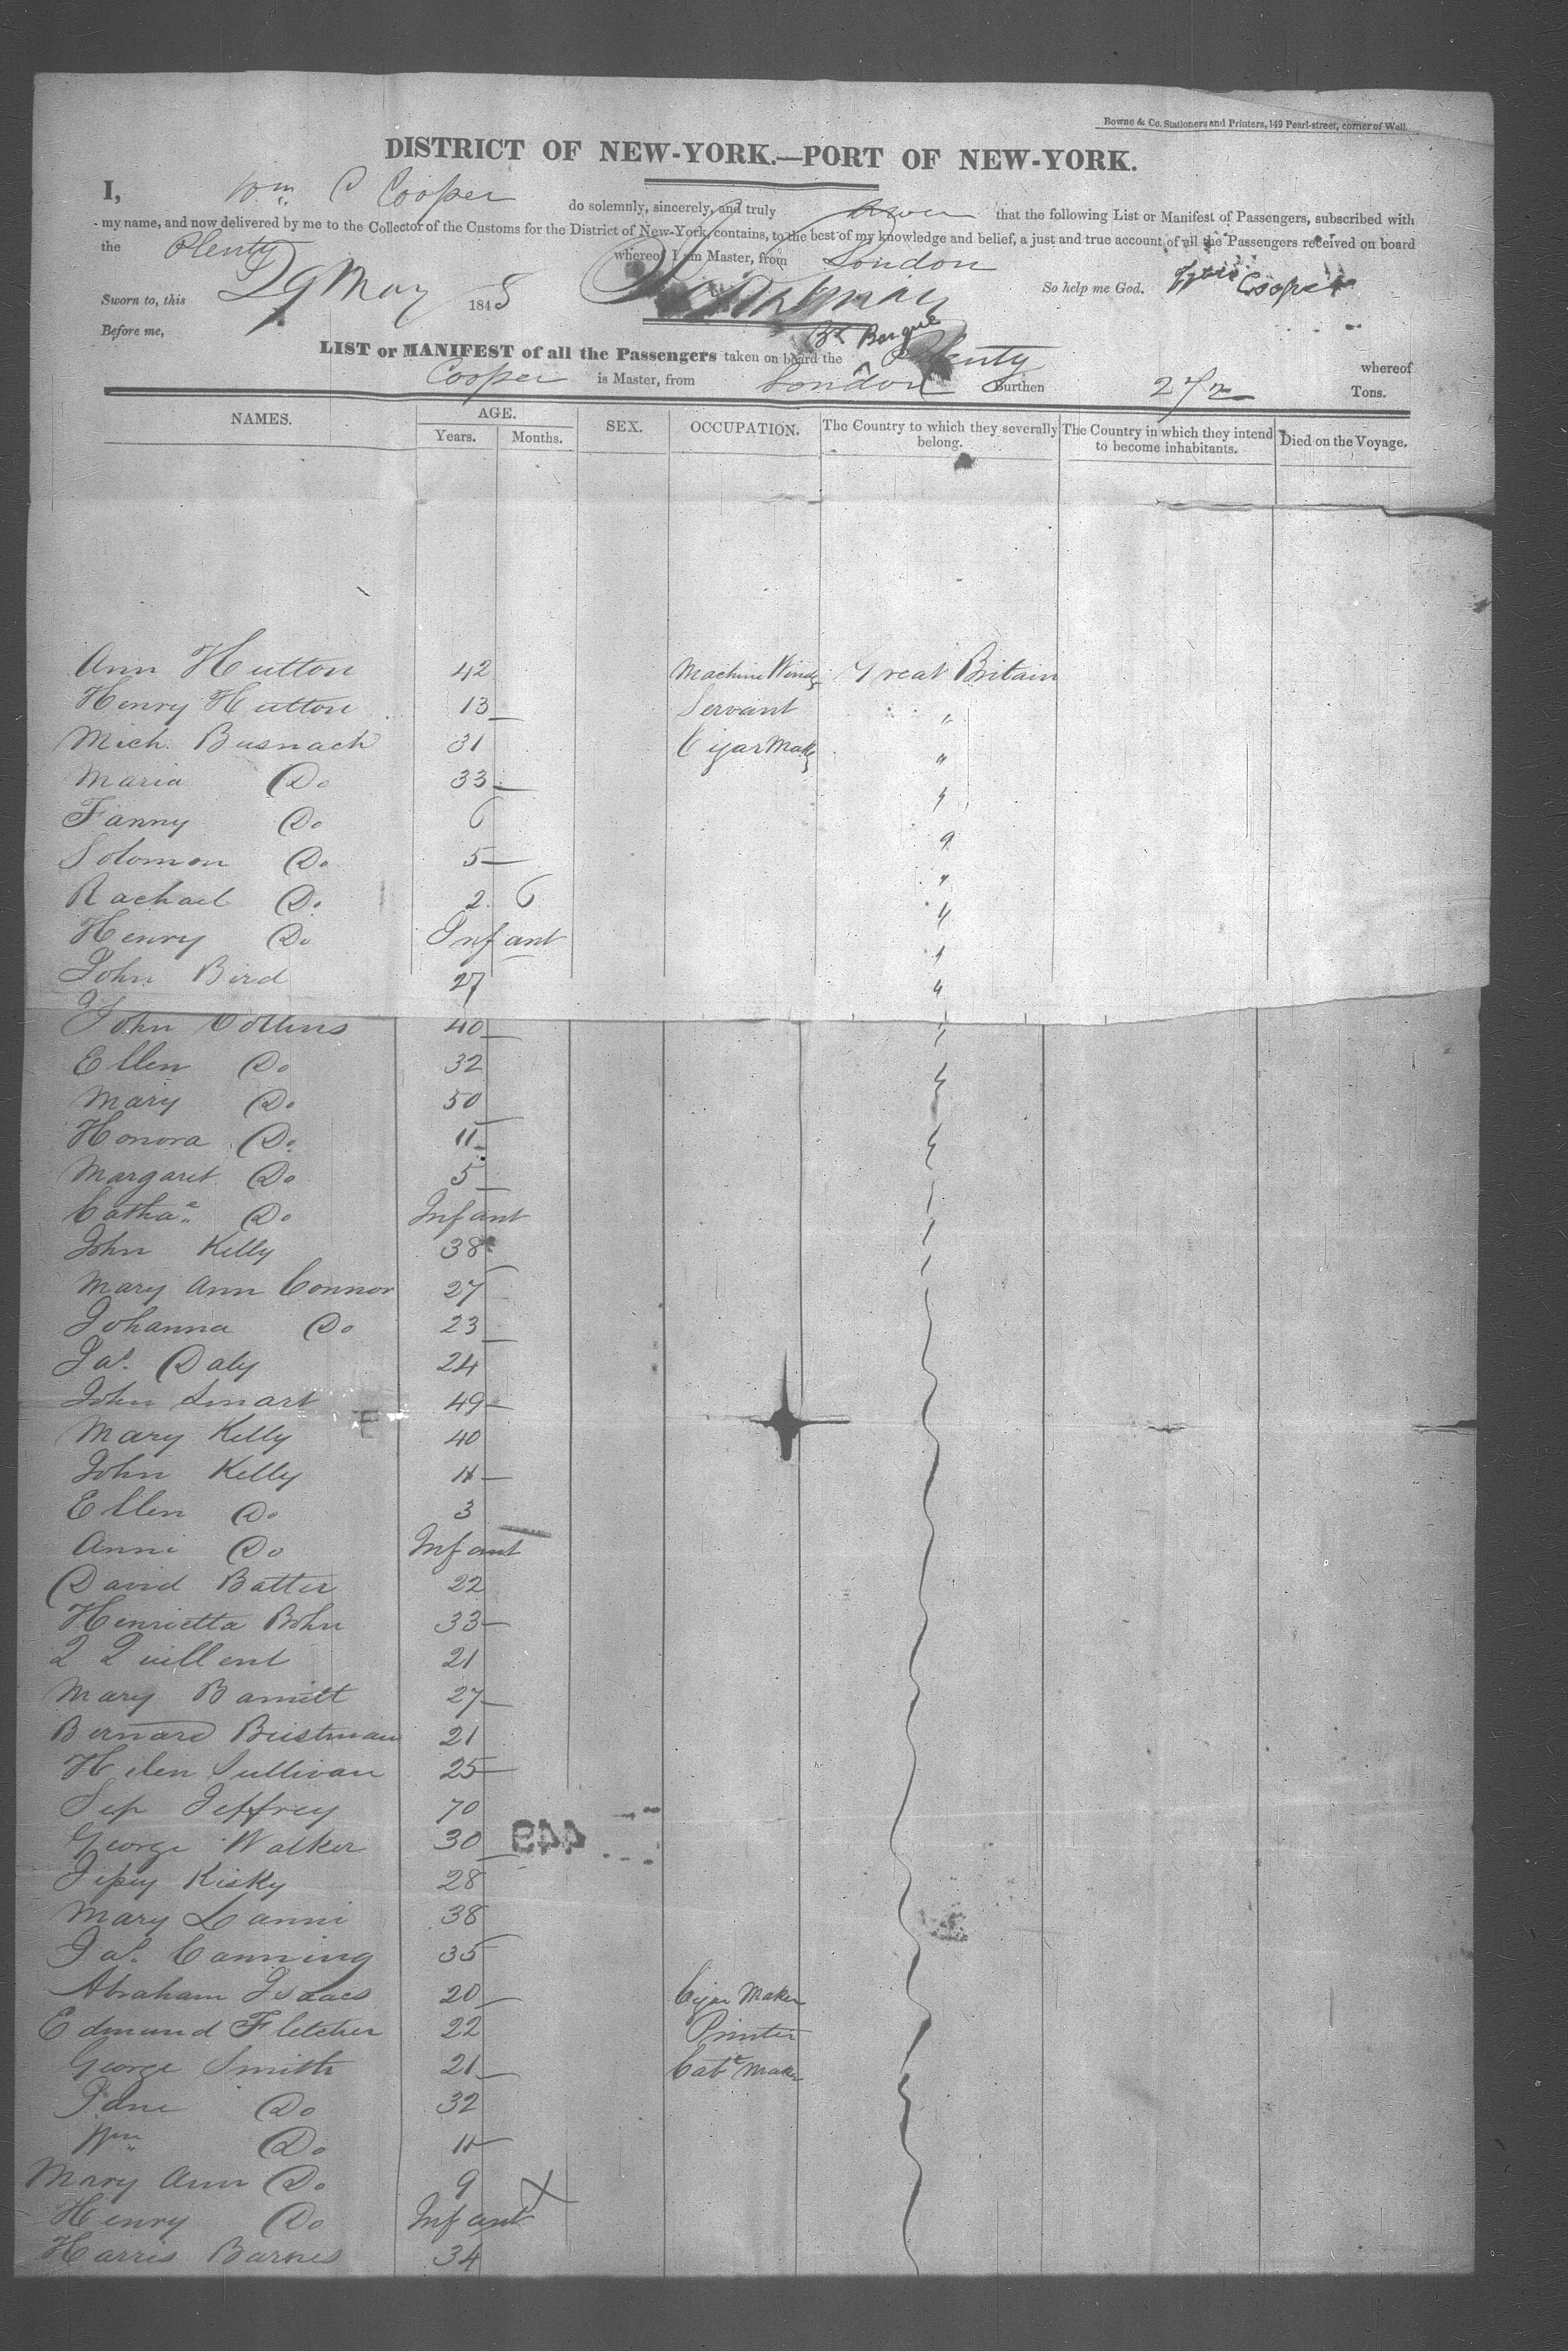 Bowne & Co. Stationers and Printers, 149 Pearl-street, corner of Wall.
DISTRICT OF NEW-YORK.—PORT OF NEW-YORK.
I, Wm C Cooper do solemnly, sincerely, and truly swear that the following List or Manifest of Passengers, subscribed with
my name, and now delivered by me to the Collector of the Customs for the District of New-York, contains, to the best of my knowledge and belief, a just and true account of all the Passengers received on board
the Plenty whereof I am Master, from London
Sworn to, this 29 May 1848 So help me God. Cooper
Before me,
Br Barque
LIST or MANIFEST of all the Passengers taken on board the Plenty whereof
Cooper is Master, from London Burthen Tons.
NAMES. AGE. SEX. OCCUPATION. The Country to which they severally belong. The Country in which they intend to become inhabitants. Died on the Voyage.
Years. Months.
Ann Hutton 42 Machine Great Britain
Henry Hutton 13 Servant "
Mich. Busnach 31 Cigar Maker "
Maria Do 33 "
Fanny Do 6 "
Solomon Do 5 "
Rachael Do 2 6 "
Henry Do Infant "
John Bird 27 "
John Collins 40
Ellen Do 32
Mary Do 50
Honora Do 11
Margaret Do 5
Catha Do Infant
John Kelly 38
Mary Ann Connor 27
Johanna Do 23
Jas. Daly 24
John Smart 49
Mary Kelly 40
John Kelly 11
Ellen Do 3
Anni Do Infant
David Batter 22
Henrietta Bohn 33
21
Mary Barnett 27
Bernard 21
Helen Sullivan 25
Sep Jeffrey 70
George Walker 30
449
Kisky 28
Mary Lanni 38
Jas. Canning 35
Abraham Isaacs 20 Cigar Maker
Edmund Fletcher 22 Printer
George Smith 21 Cabt Maker
Jane Do 32
Wm Do 11
Mary Ann Do 9 X
Henry Do Infant
Harris Barnes 34